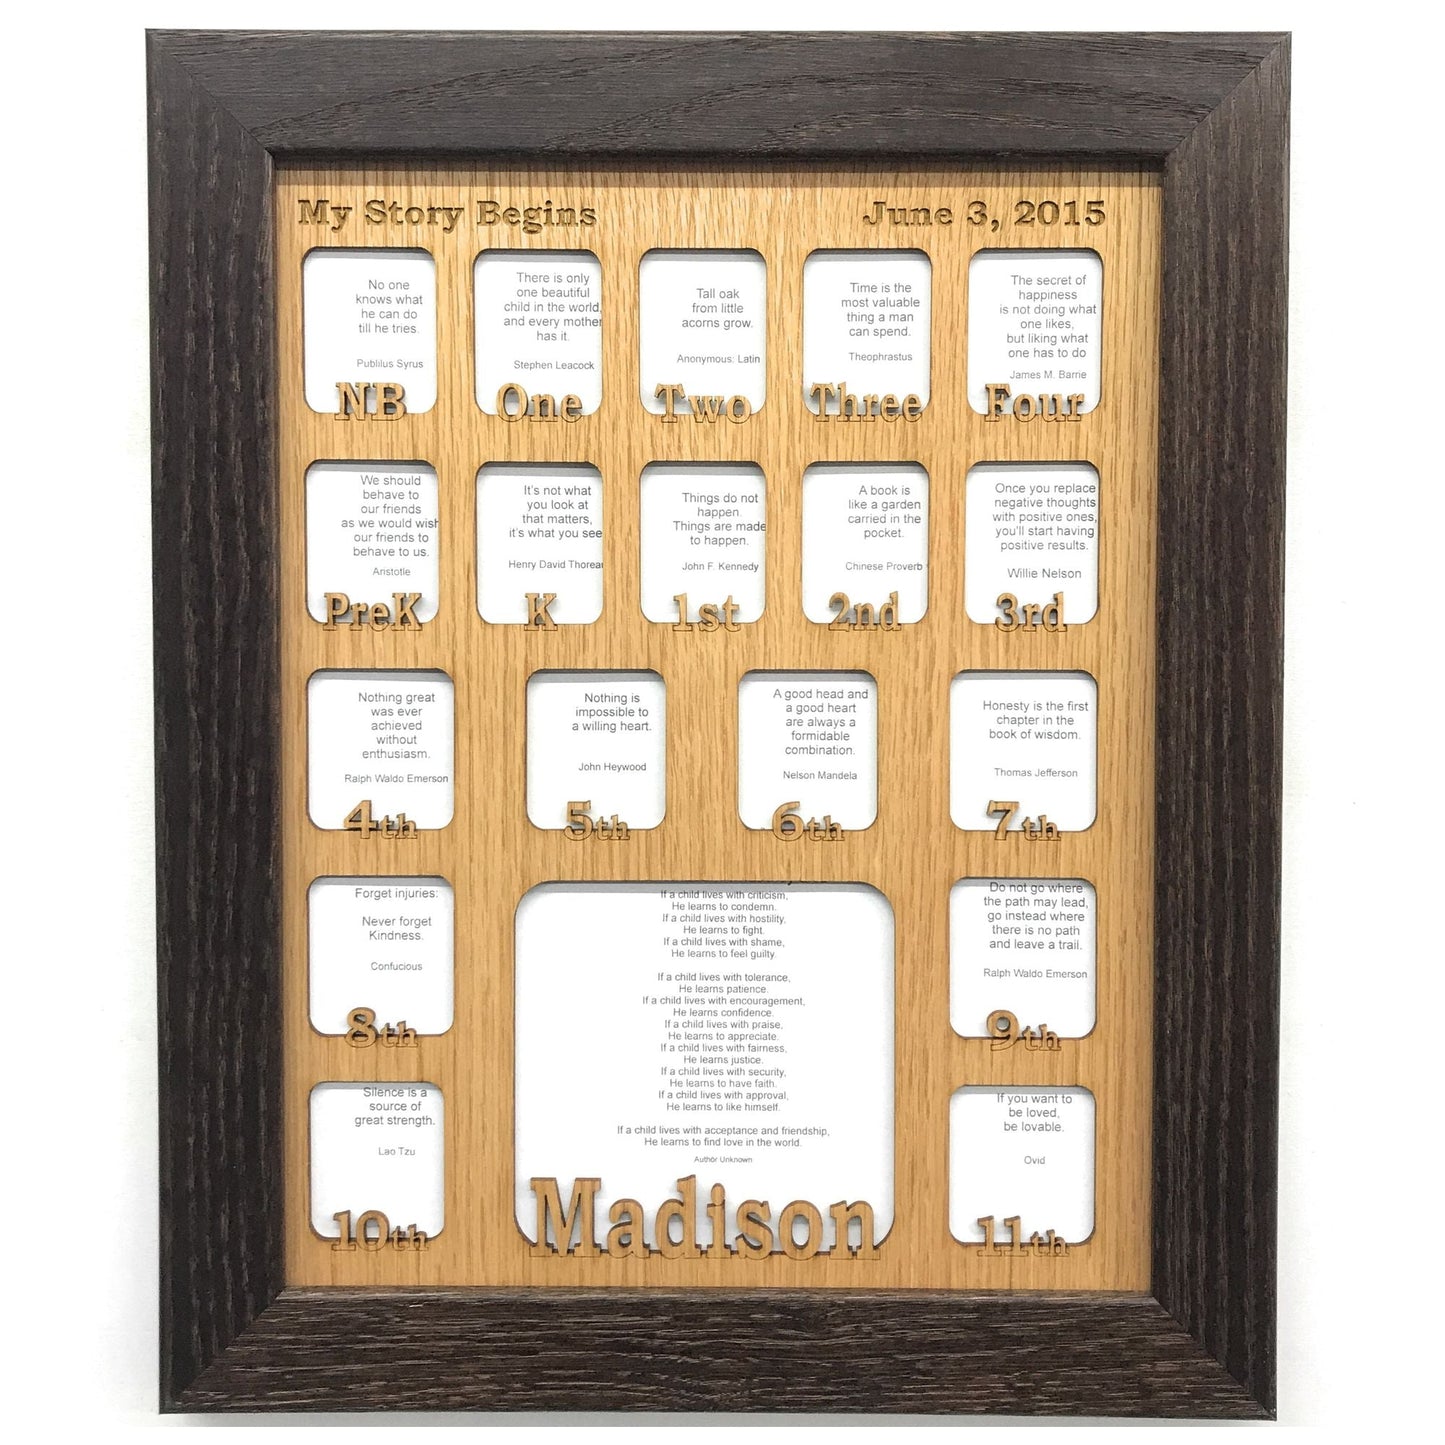 My Story Begins
June 3, 2015
No one
knows what
he can do
till he tries.
Publilus Syrus
NB
There is only
one beautiful
child in the world,
and every mother
has it.
Stephen Leacock
One
Tall oak
from little
acorns grow.
Anonymous: Latin
Two
Time is the
most valuable
thing a man
can spend.
Theophrastus
Three
The secret of
happiness
is not doing what
one likes,
but liking what
one has to do
James M. Barrie
Four
We should
behave to
our friends
as we would wish
our friends to
behave to us.
Aristotle
PreK
It's not what
you look at
that matters,
it's what you see
Henry David Thoreau
K
Things do not
happen.
Things are made
to happen.
John F. Kennedy
1st
A book is
like a garden
carried in the
pocket.
Chinese Proverb
2nd
Once you replace
negative thoughts
with positive ones,
you'll start having
positive results.
Willie Nelson
3rd
Nothing great
was ever
achieved
without
enthusiasm.
Ralph Waldo Emerson
4th
Nothing is
impossible to
a willing heart.
John Heywood
5th
A good head and
a good heart
are always a
formidable
combination.
Nelson Mandela
6th
Honesty is the first
chapter in the
book of wisdom.
Thomas Jefferson
7th
Forget injuries:
Never forget
Kindness.
Confucious
8th
If a child lives with criticism,
He learns to condemn.
If a child lives with hostility,
He learns to fight.
If a child lives with shame,
He learns to feel guilty.
If a child lives with tolerance,
He learns patience.
If a child lives with encouragement,
He learns confidence.
If a child lives with praise,
He learns to appreciate.
If a child lives with fairness,
He learns justice.
If a child lives with security,
He learns to have faith.
If a child lives with approval,
He learns to like himself.
If a child lives with acceptance and friendship,
He learns to find love in the world.
Author Unknown
Madison
Do not go where
the path may lead,
go instead where
there is no path
and leave a trail.
Ralph Waldo Emerson
9th
Silence is a
source of
great strength.
Lao Tzu
10th
If you want to
be loved,
be lovable.
Ovid
11th